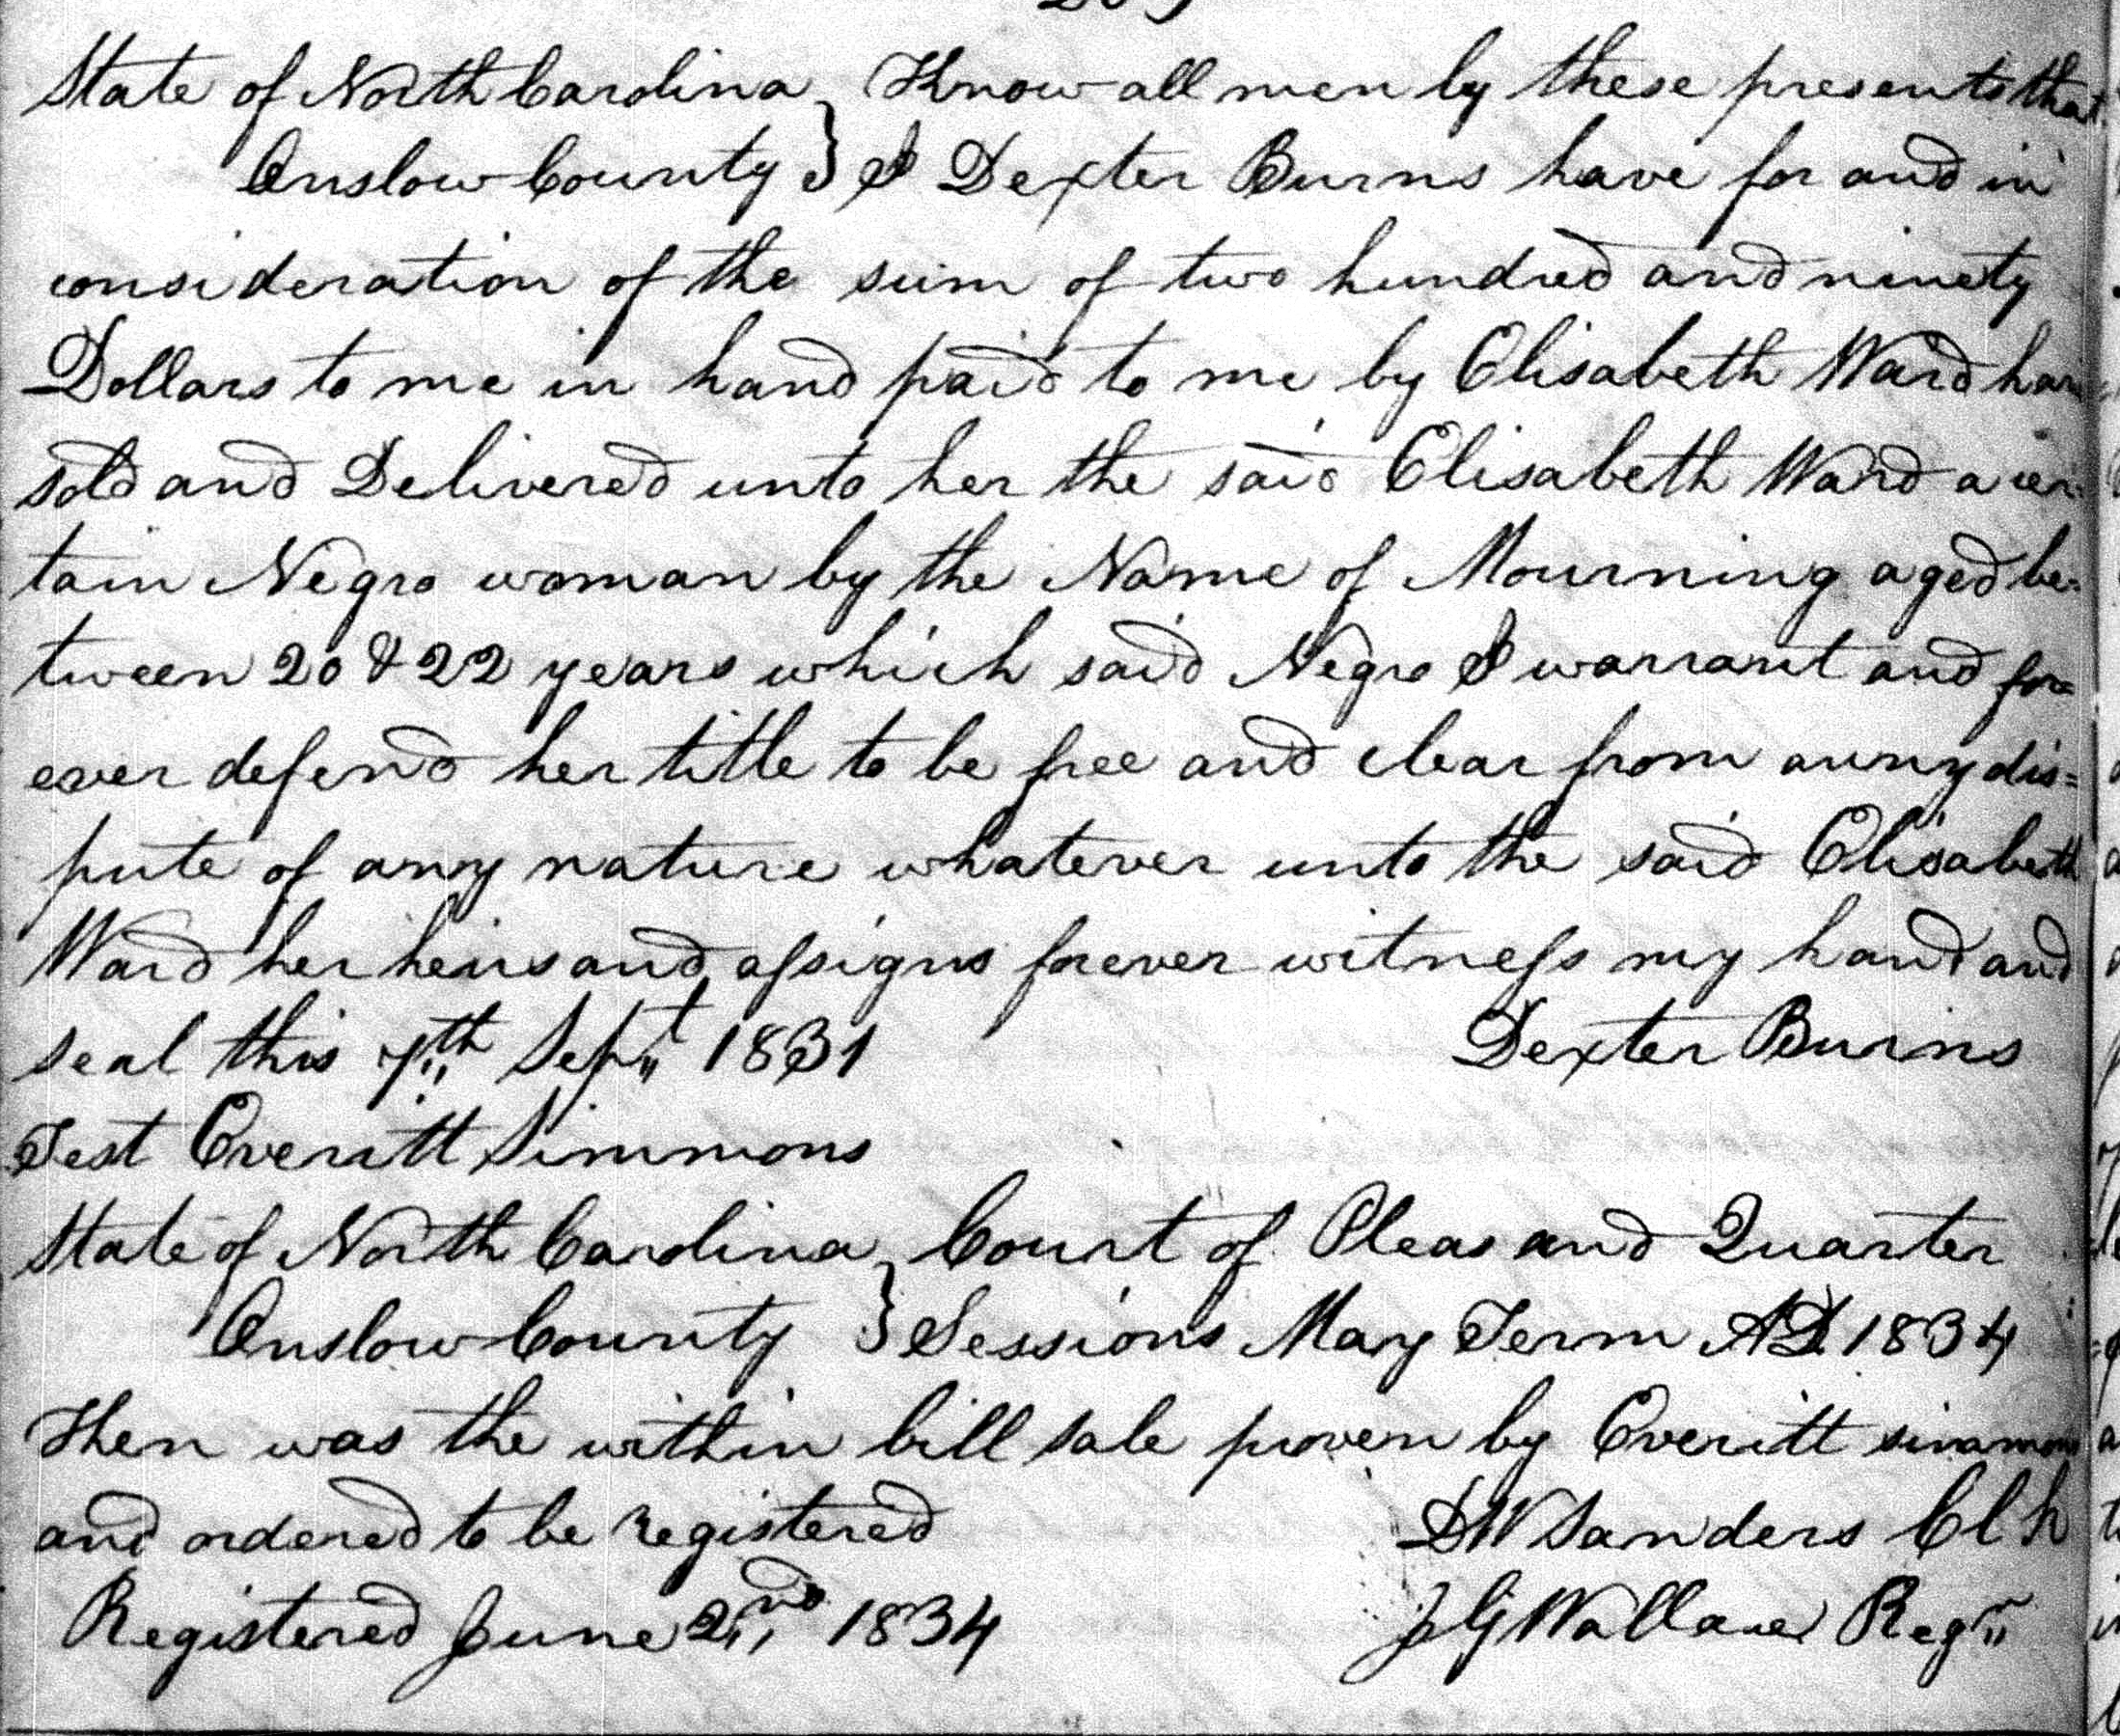 State of North Carolina } Know all men by these presents that
Onslow County } I Dexter Burns have for and in
consideration of the sum of two hundred and ninety
Dollars to me in hand paid to me by Elisabeth Ward have
sold and Delivered unto her the said Elisabeth Ward a cer-
tain Negro woman by the Name of Mourning aged be-
tween 20 & 22 years which said Negro I warrant and for=
ever defend her title to be free and clear from anny dis=
pute of any nature whatever unto the said Elisabeth
Ward her heirs and assigns forever witness my hand and
seal this 7th Sept 1831 Dexter Burns
Test Everitt Simmons
State of North Carolina } Court of Pleas and Quarter
Onslow County } Sessions May Term AD 1834
Then was the within bill sale proven by Everitt simmons
and ordered to be registered D W Sanders Clk
Registered June 2nd 1834 J G Wallace Regr